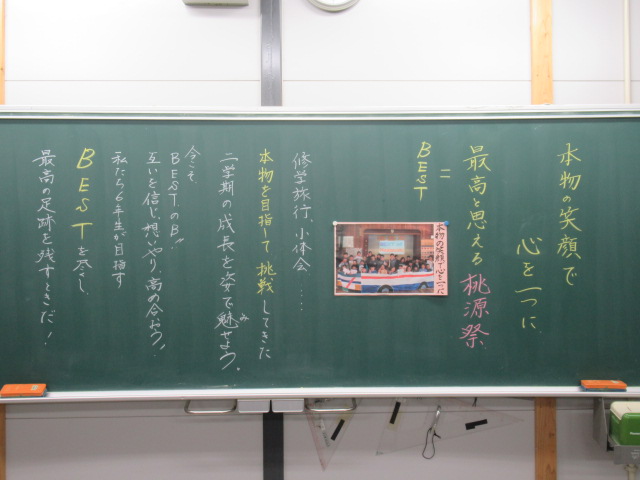 本物の笑顔で
心を一つに
最高と思える桃源祭
=
BEST
本物の笑顔で心を一つに
修学旅行、小体会……
本物を目指して挑戦してきた
二学期の成長を姿で魅せよう。
み
今こそ
BESTのB!!
互いを信じ、想いやり高め合おう!
私たち6年生が目指す
BESTを尽くし
最高の足跡を残すときだ!